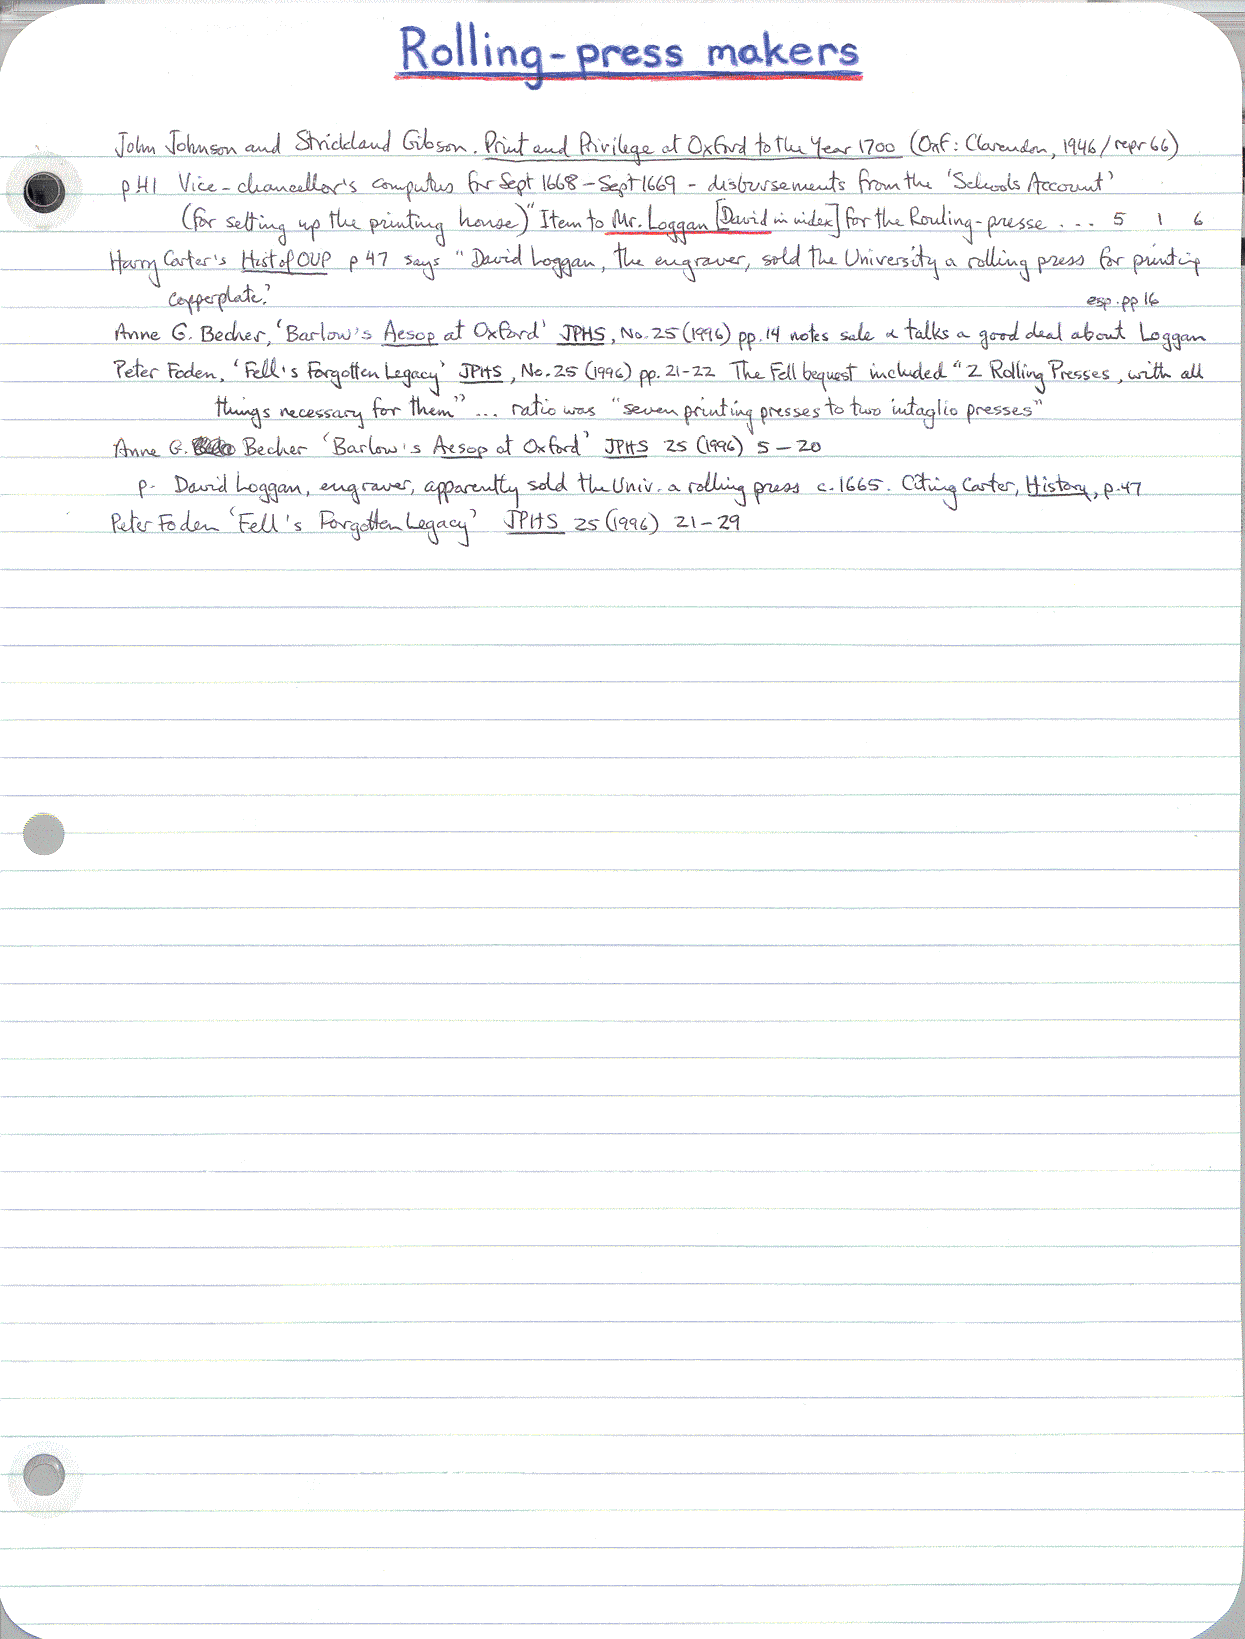 Rolling-press makers
John Johnson and Strickland Gibson. Print and Privilege at Oxford to the Year 1700 (Oxf: Clarendon, 1946/repr 66)
p 41 Vice-chancellor's computus for Sept 1668-Sept 1669 - disbursements from the 'Schools Account'
(for setting up the printing house) "Item to Mr. Loggan [David in index] for the Rouling-presse ... 5 1 6
Harry Carter's Hist of OUP p 47 says "David Loggan, the engraver, sold the University a rolling press for printing
copperplate."
esp. pp 16
Anne G. Becher, 'Barlow's Aesop at Oxford' JPHS, No. 25 (1996) pp. 14 notes sale & talks a good deal about Loggan
Peter Foden, 'Fell's Forgotten Legacy' JPHS, No. 25 (1996) pp. 21-22 The Fell bequest included "2 Rolling Presses, with all
things necessary for them" ... ratio was "seven printing presses to two intaglio presses"
Anne G. Becher 'Barlow's Aesop at Oxford' JPHS 25 (1996) 5-20
p- David Loggan, engraver, apparently sold the Univ. a rolling press c. 1665. Citing Carter, History, p. 47
Peter Foden 'Fell's Forgotten Legacy' JPHS 25 (1996) 21-29